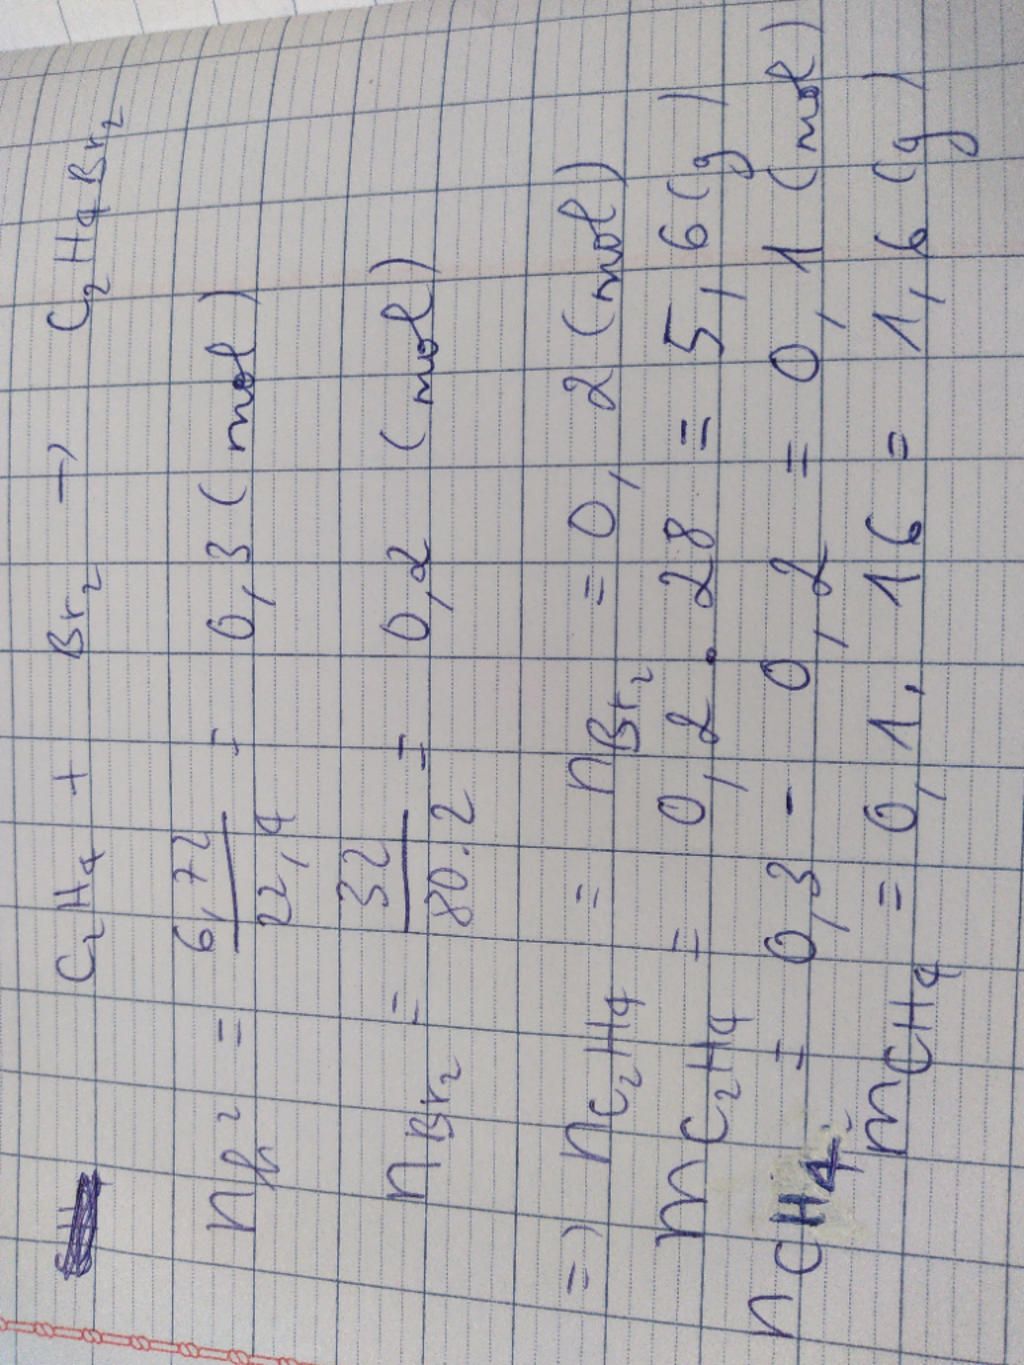 C₂H₄ + Br₂ → C₂H₄Br₂
n h² = 6,72 / 22,4 = 0,3 (mol)
n Br₂ = 32 / 80.2 = 0,2 (mol)
=) n C₂H₄ = n Br₂ = 0,2 (mol)
m C₂H₄ = 0,2 . 28 = 5,6 (g)
n CH₄ = 0,3 - 0,2 = 0,1 (mol)
m CH₄ = 0,1. 16 = 1,6 (g)